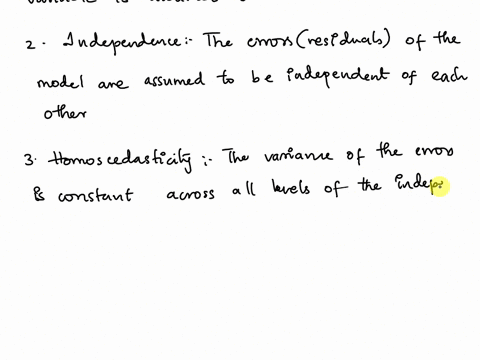 2. Independence:- The errors (residuals) of the
model are assumed to be independent of each
other
3. Homoscedasticity:- The variance of the errors
is constant across all levels of the indep